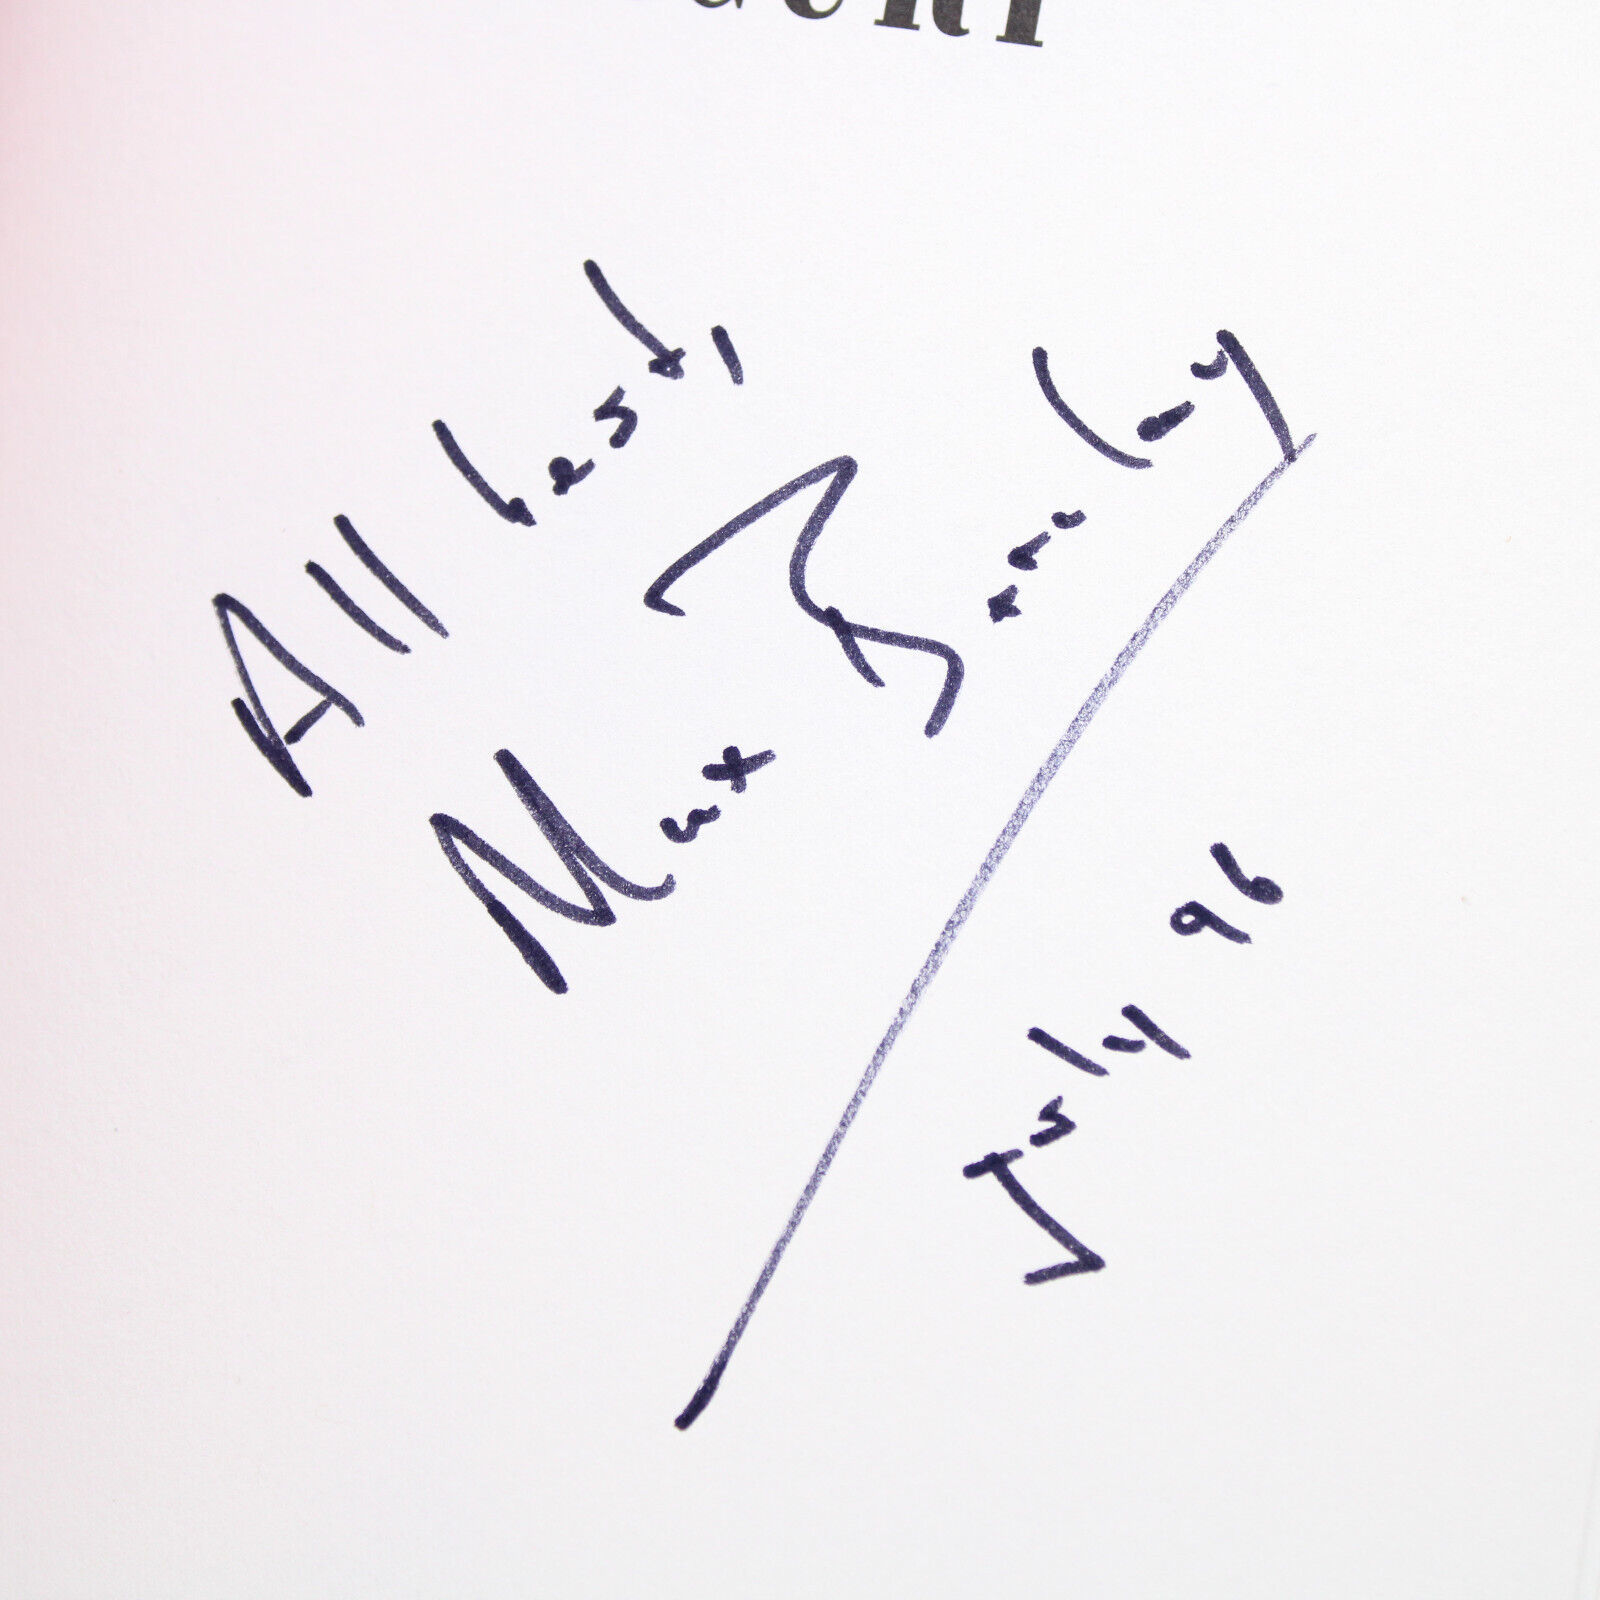 All best,
Max
July 96